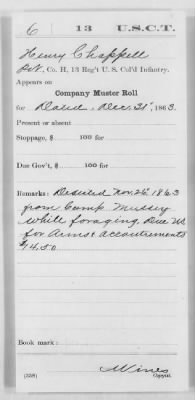 6 13 U.S.C.T.
Henry Chappell
Pvt, Co. H, 13 Reg't U. S. Col'd Infantry.
Appears on
Company Muster Roll
for Dated Dec. 31", 1863.
Present or absent
Stoppage, $ 100 for
Due Gov't, $ 100 for
Remarks: Deserted Nov. 26" 1863
from Camp Mussey
while foraging. Due U.S.
for Arms & accoutrements
$14.50
Book mark:
(358) Wines
Copyist.